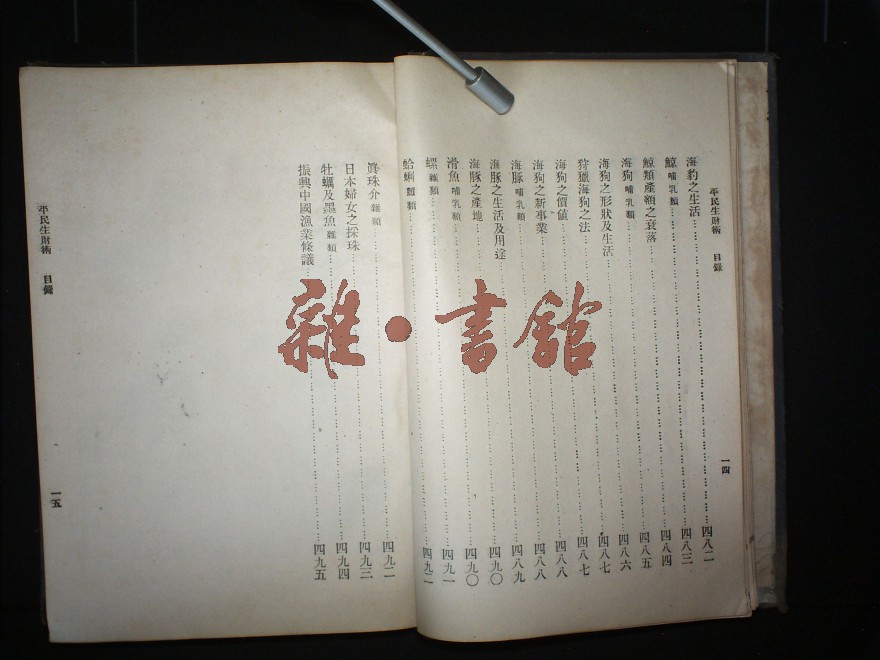 平民生財術 目錄
海豹之生活 四八二
鯨 哺乳類 四八三
鯨類產額之衰落 四八四
海狗 哺乳類 四八五
海狗之形狀及生活 四八六
狩獵海狗之法 四八七
海狗之價值 四八七
海狗之新事業 四八八
海豚 哺乳類 四八八
海豚之生活及用途 四八九
海豚之產地 四九〇
滑魚 哺乳類 四九〇
螺 雜類 四九一
蛤蜊 雜類 四九二
一四
眞珠介 雜類 四九二
日本婦女之採珠 四九三
牡蠣及墨魚 雜類 四九四
振興中國漁業條議 四九五
平民生財術 目錄
一五
雜・書館